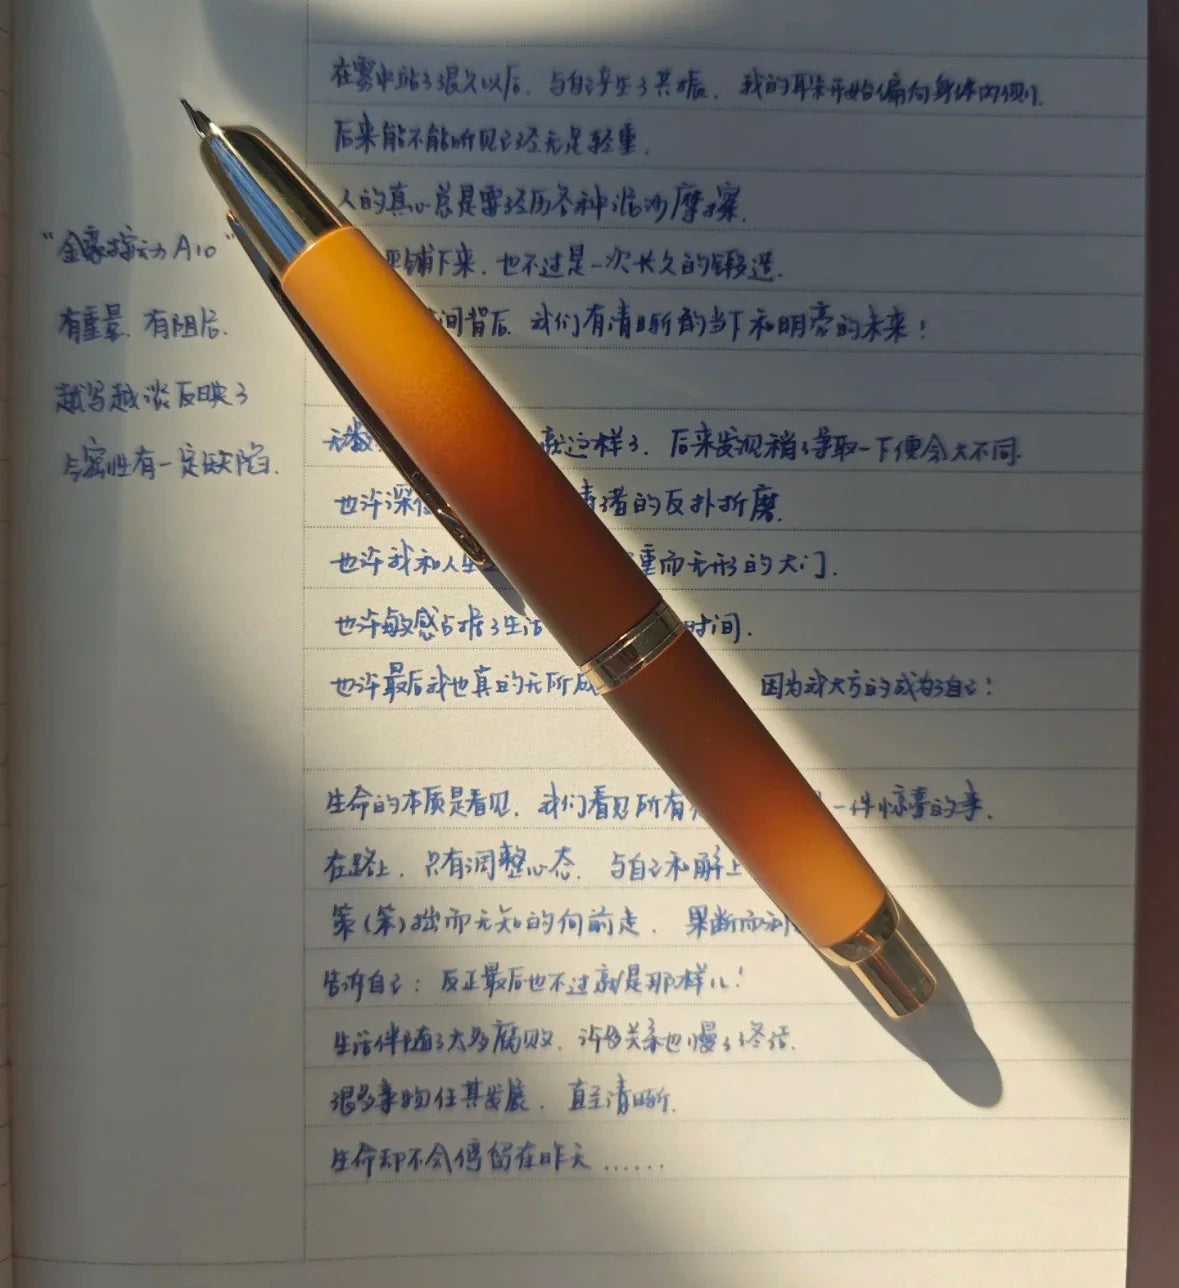 在雾中站了很久以后，与自己产生了共振，我的耳朵开始偏向身体内侧，
后来能不能听见已经无足轻重，
人的真心总是需经历各种泥沙摩擦，
铺下来，也不过是一次长久的锻造。
间背后，我们有清晰的当下和明亮的未来！
无数 就这样了，后来发现稍了争取一下便会大不同。
也许深 情绪的反扑折磨，
也许我和人生 重而无形的大门，
也许敏感占据了生活 时间，
也许最后我也真的无所成 因为我大方的成为了自己！
生命的本质是看见，我们看见所有 一件惊喜的事，
在路上，只有调整心态，与自己和解上
策（笨）拙而无知的向前走，果断而利
告诉自己：反正最后也不过就是那样儿！
生活伴随了大多腐败，许多关系也慢了终结，
很多事物任其发展，直至清晰，
生命却不会停留在昨天……
“金豪按动A10”
有重量，有阻尼，
越写越淡反映了
气密性有一定缺陷。